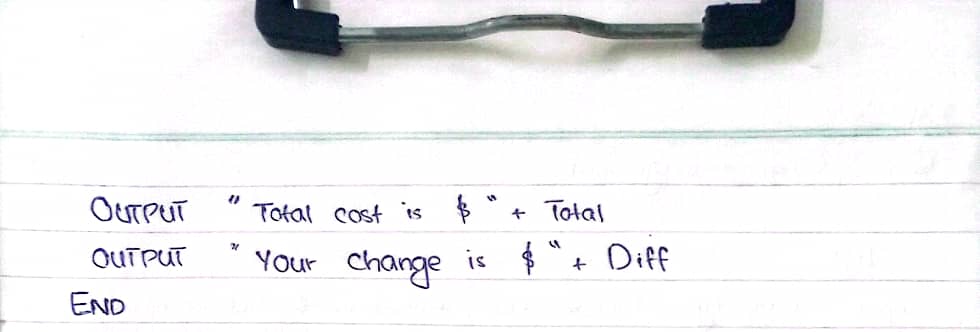 OUTPUT " Total cost is $ " + Total
OUTPUT " Your change is $ " + Diff
END